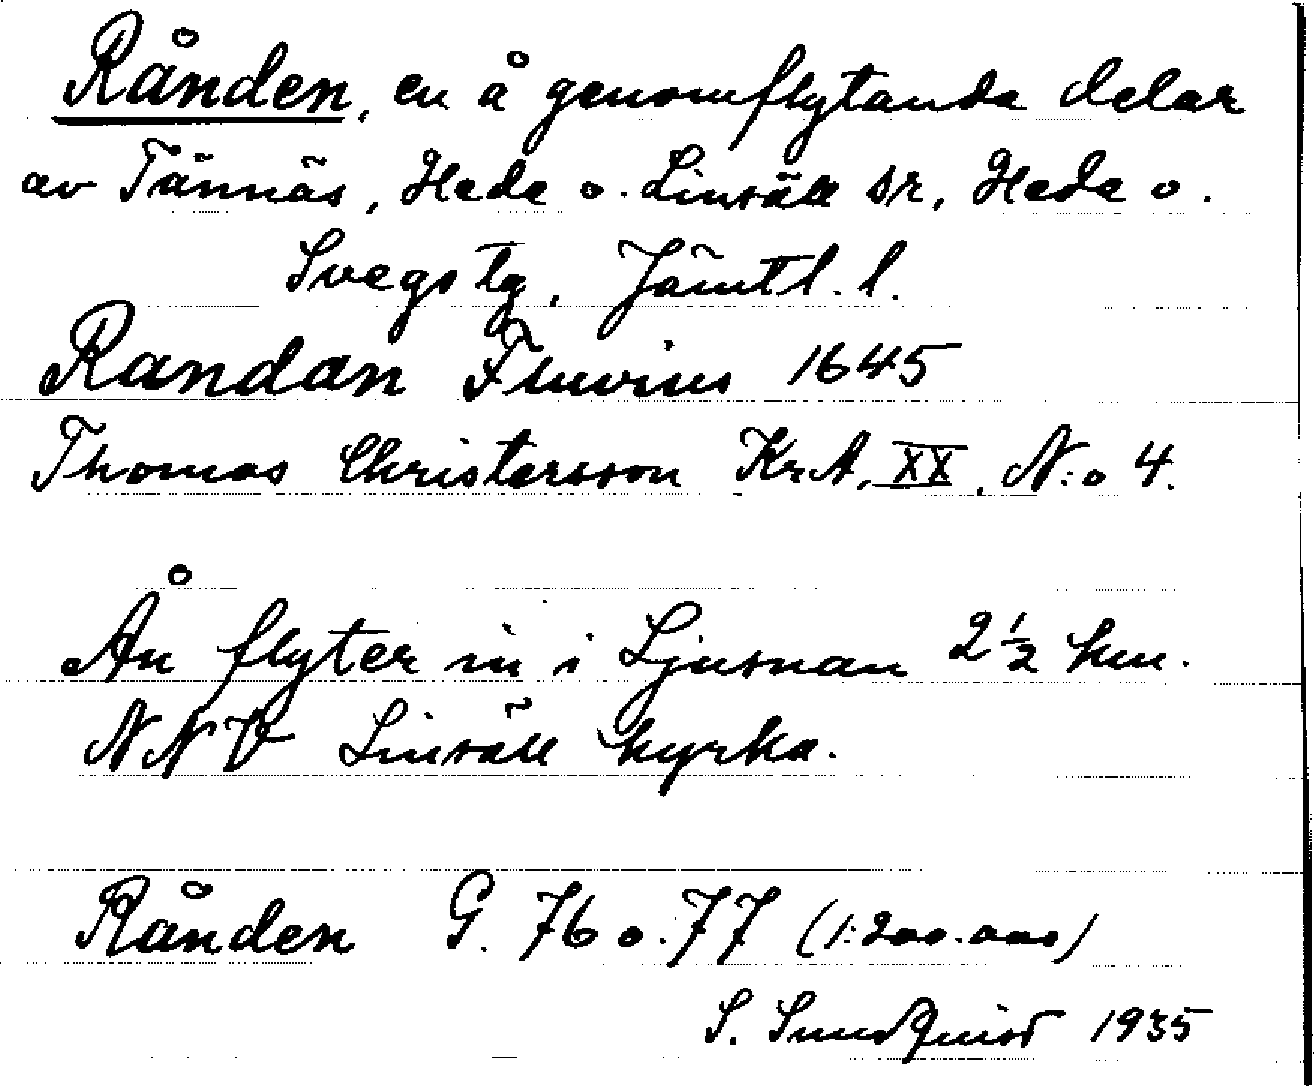 Rånden, en å genomflytande delar
av Tännäs, Hede o. Linsäll snr, Hede o.
Svegs tg, Jämtl. l.
Randan Fluvius 1645
Thomas Christersson KrA, XX, N:o 4.
Ån flyter in i Ljusnan 2 1/2 km.
NNV Linsäll kyrka.
Rånden G. 76 o. 77 (1:200.000)
S. Sundquist 1935